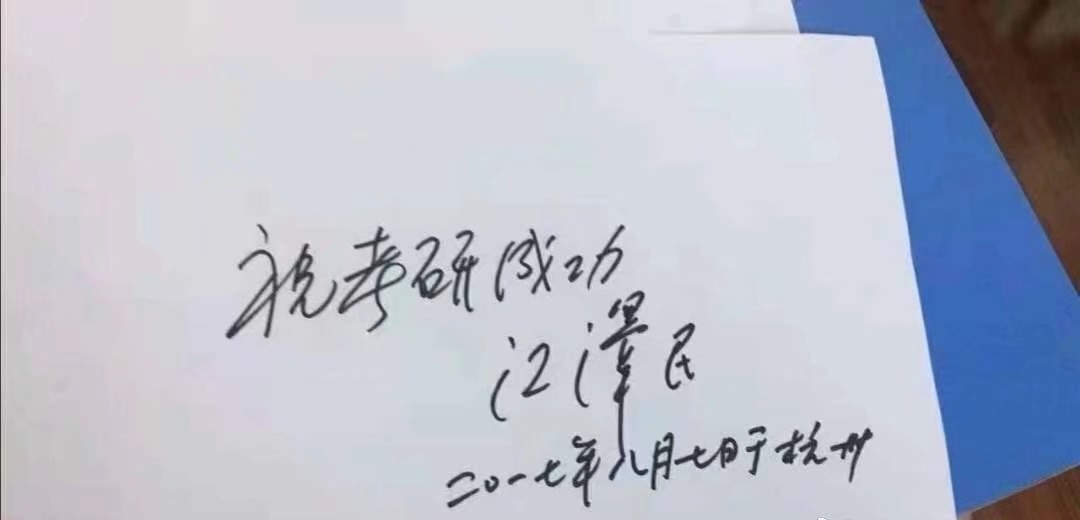 祝考研成功
江澤民
二〇一七年八月七日于杭州